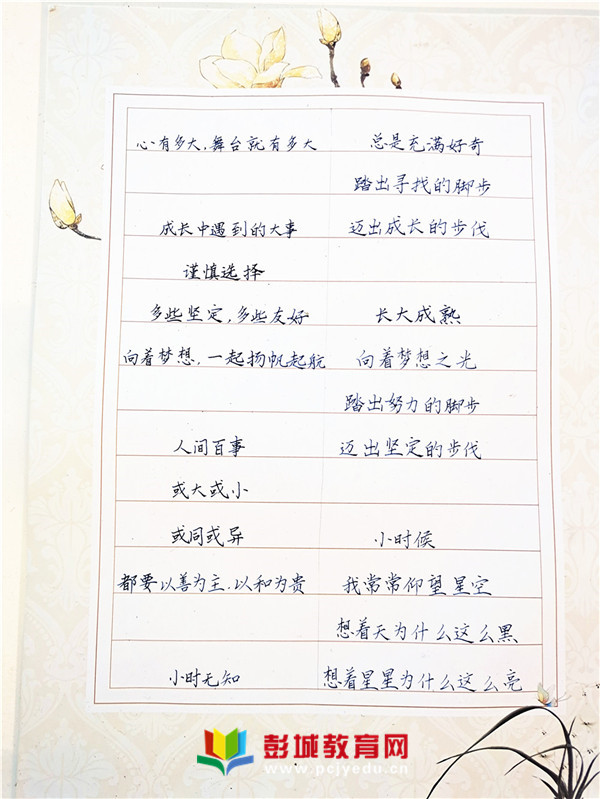 心有多大，舞台就有多大
成长中遇到的大事
谨慎选择
多些坚定，多些友好
向着梦想，一起扬帆起航
人间百事
或大或小
或同或异
都要以善为主，以和为贵
小时无知
总是充满好奇
踏出寻找的脚步
迈出成长的步伐
长大成熟
向着梦想之光
踏出努力的脚步
迈出坚定的步伐
小时候
我常常仰望星空
想着天为什么这么黑
想着星星为什么这么亮
彭城教育网
www.pcjyedu.cn